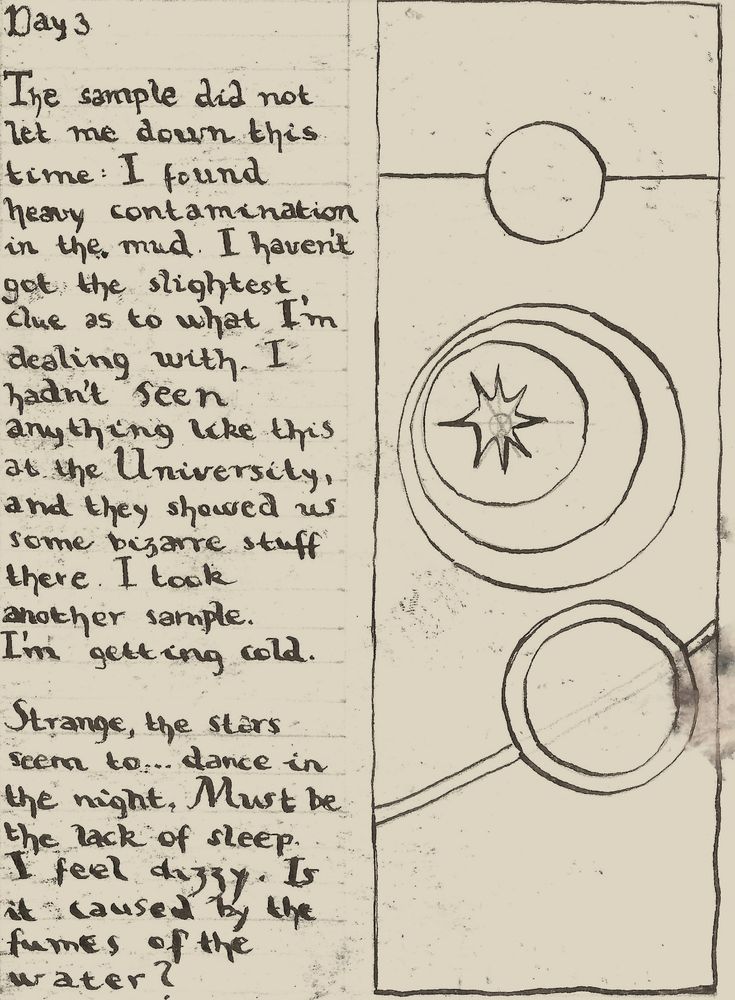 Day 3
The sample did not
let me down this
time: I found
heavy contamination
in the mud. I haven't
got the slightest
clue as to what I'm
dealing with. I
hadn't seen
anything like this
at the University,
and they showed us
some bizarre stuff
there. I took
another sample.
I'm getting cold.
Strange, the stars
seem to... dance in
the night. Must be
the lack of sleep.
I feel dizzy. Is
it caused by the
fumes of the
water?